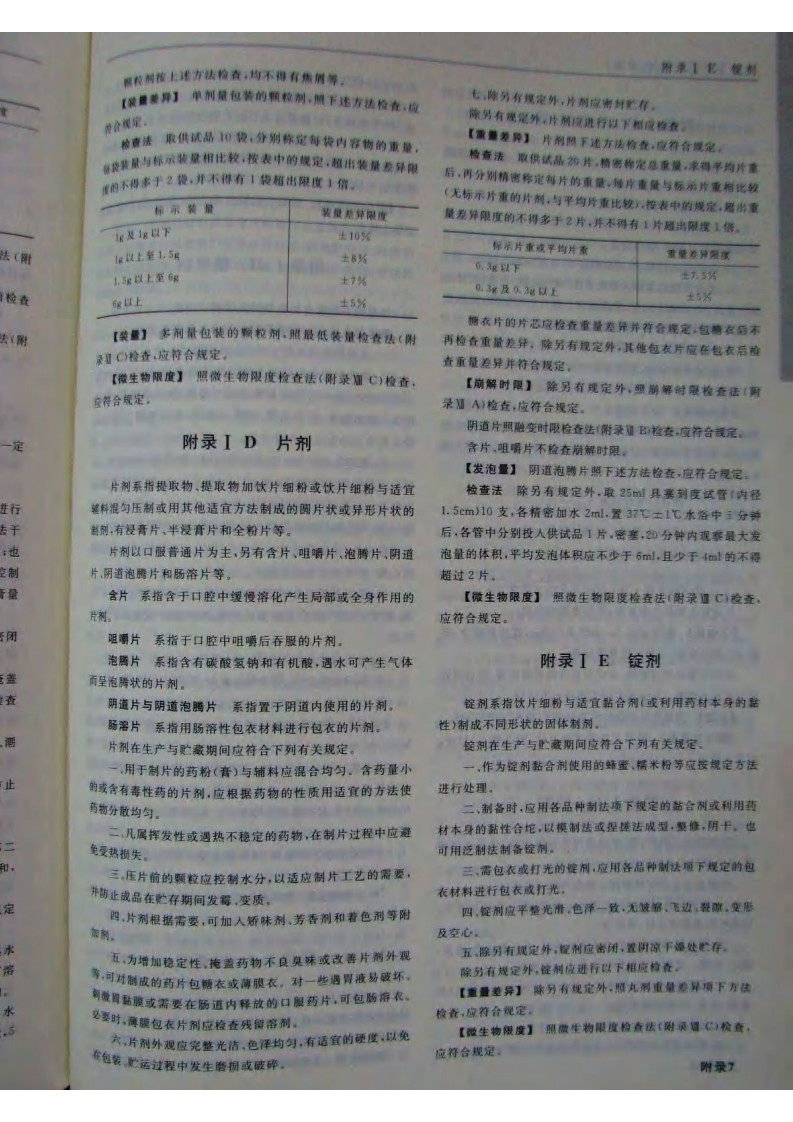 附录Ⅰ E 锭剂
颗粒剂按上述方法检查,均不得有焦屑等。
【装量差异】 单剂量包装的颗粒剂,照下述方法检查,应
符合规定。
检查法 取供试品 10 袋,分别称定每袋内容物的重量,
每袋装量与标示装量相比较,按表中的规定,超出装量差异限
度的不得多于 2 袋,并不得有 1 袋超出限度 1 倍。
标 示 装 量 装量差异限度
1g 及 1g 以下 ±10%
1g 以上至 1.5g ±8%
1.5g 以上至 6g ±7%
6g 以上 ±5%
【装量】 多剂量包装的颗粒剂,照最低装量检查法(附
录Ⅻ C)检查,应符合规定。
【微生物限度】 照微生物限度检查法(附录ⅩⅢ C)检查,
应符合规定。
附录Ⅰ D 片剂
片剂系指提取物、提取物加饮片细粉或饮片细粉与适宜
辅料混匀压制或用其他适宜方法制成的圆片状或异形片状的
制剂,有浸膏片、半浸膏片和全粉片等。
片剂以口服普通片为主,另有含片、咀嚼片、泡腾片、阴道
片、阴道泡腾片和肠溶片等。
含片 系指含于口腔中缓慢溶化产生局部或全身作用的
片剂。
咀嚼片 系指于口腔中咀嚼后吞服的片剂。
泡腾片 系指含有碳酸氢钠和有机酸,遇水可产生气体
而呈泡腾状的片剂。
阴道片与阴道泡腾片 系指置于阴道内使用的片剂。
肠溶片 系指用肠溶性包衣材料进行包衣的片剂。
片剂在生产与贮藏期间应符合下列有关规定。
一、用于制片的药粉(膏)与辅料应混合均匀。含药量小
的或含有毒性药的片剂,应根据药物的性质用适宜的方法使
药物分散均匀。
二、凡属挥发性或遇热不稳定的药物,在制片过程中应避
免受热损失。
三、压片前的颗粒应控制水分,以适应制片工艺的需要,
并防止成品在贮存期间发霉、变质。
四、片剂根据需要,可加入矫味剂、芳香剂和着色剂等附
加剂。
五、为增加稳定性、掩盖药物不良臭味或改善片剂外观
等,可对制成的药片包糖衣或薄膜衣。对一些遇胃液易破坏、
刺激胃黏膜或需要在肠道内释放的口服药片,可包肠溶衣。
必要时,薄膜包衣片剂应检查残留溶剂。
六、片剂外观应完整光洁、色泽均匀,有适宜的硬度,以免
在包装、贮运过程中发生磨损或破碎。
七、除另有规定外,片剂应密封贮存。
除另有规定外,片剂应进行以下相应检查。
【重量差异】 片剂照下述方法检查,应符合规定。
检查法 取供试品 20 片,精密称定总重量,求得平均片重
后,再分别精密称定每片的重量,每片重量与标示片重相比较
(无标示片重的片剂,与平均片重比较),按表中的规定,超出重
量差异限度的不得多于 2 片,并不得有 1 片超出限度 1 倍。
标示片重或平均片重 重量差异限度
0.3g 以下 ±7.5%
0.3g 及 0.3g 以上 ±5%
糖衣片的片芯应检查重量差异并符合规定,包糖衣后不
再检查重量差异。除另有规定外,其他包衣片应在包衣后检
查重量差异并符合规定。
【崩解时限】 除另有规定外,照崩解时限检查法(附
录Ⅻ A)检查,应符合规定。
阴道片照融变时限检查法(附录Ⅻ B)检查,应符合规定。
含片、咀嚼片不检查崩解时限。
【发泡量】 阴道泡腾片照下述方法检查,应符合规定。
检查法 除另有规定外,取 25ml 具塞刻度试管(内径
1.5cm)10 支,各精密加水 2ml,置 37℃±1℃水浴中 5 分钟
后,各管中分别投入供试品 1 片,密塞,20 分钟内观察最大发
泡量的体积,平均发泡体积应不少于 6ml,且少于 4ml 的不得
超过 2 片。
【微生物限度】 照微生物限度检查法(附录ⅩⅢ C)检查,
应符合规定。
附录Ⅰ E 锭剂
锭剂系指饮片细粉与适宜黏合剂(或利用药材本身的黏
性)制成不同形状的固体制剂。
锭剂在生产与贮藏期间应符合下列有关规定。
一、作为锭剂黏合剂使用的蜂蜜、糯米粉等应按规定方法
进行处理。
二、制备时,应用各品种制法项下规定的黏合剂或利用药
材本身的黏性合坨,以模制法或捏搓法成型,整修,阴干。也
可用泛制法制备锭剂。
三、需包衣或打光的锭剂,应用各品种制法项下规定的包
衣材料进行包衣或打光。
四、锭剂应平整光滑、色泽一致,无皱缩、飞边、裂隙、变形
及空心。
五、除另有规定外,锭剂应密闭,置阴凉干燥处贮存。
除另有规定外,锭剂应进行以下相应检查。
【重量差异】 除另有规定外,照丸剂重量差异项下方法
检查,应符合规定。
【微生物限度】 照微生物限度检查法(附录ⅩⅢ C)检查,
应符合规定。
附录7